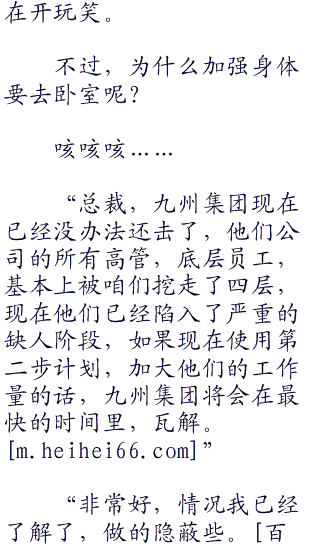 在开玩笑。
不过，为什么加强身体
要去卧室呢？
咳咳咳……
“总裁，九州集团现在
已经没办法还击了，他们公
司的所有高管，底层员工，
基本上被咱们挖走了四层，
现在他们已经陷入了严重的
缺人阶段，如果现在使用第
二步计划，加大他们的工作
量的话，九州集团将会在最
快的时间里，瓦解。
[m.heihei66.com]”
“非常好，情况我已经
了解了，做的隐蔽些。[百